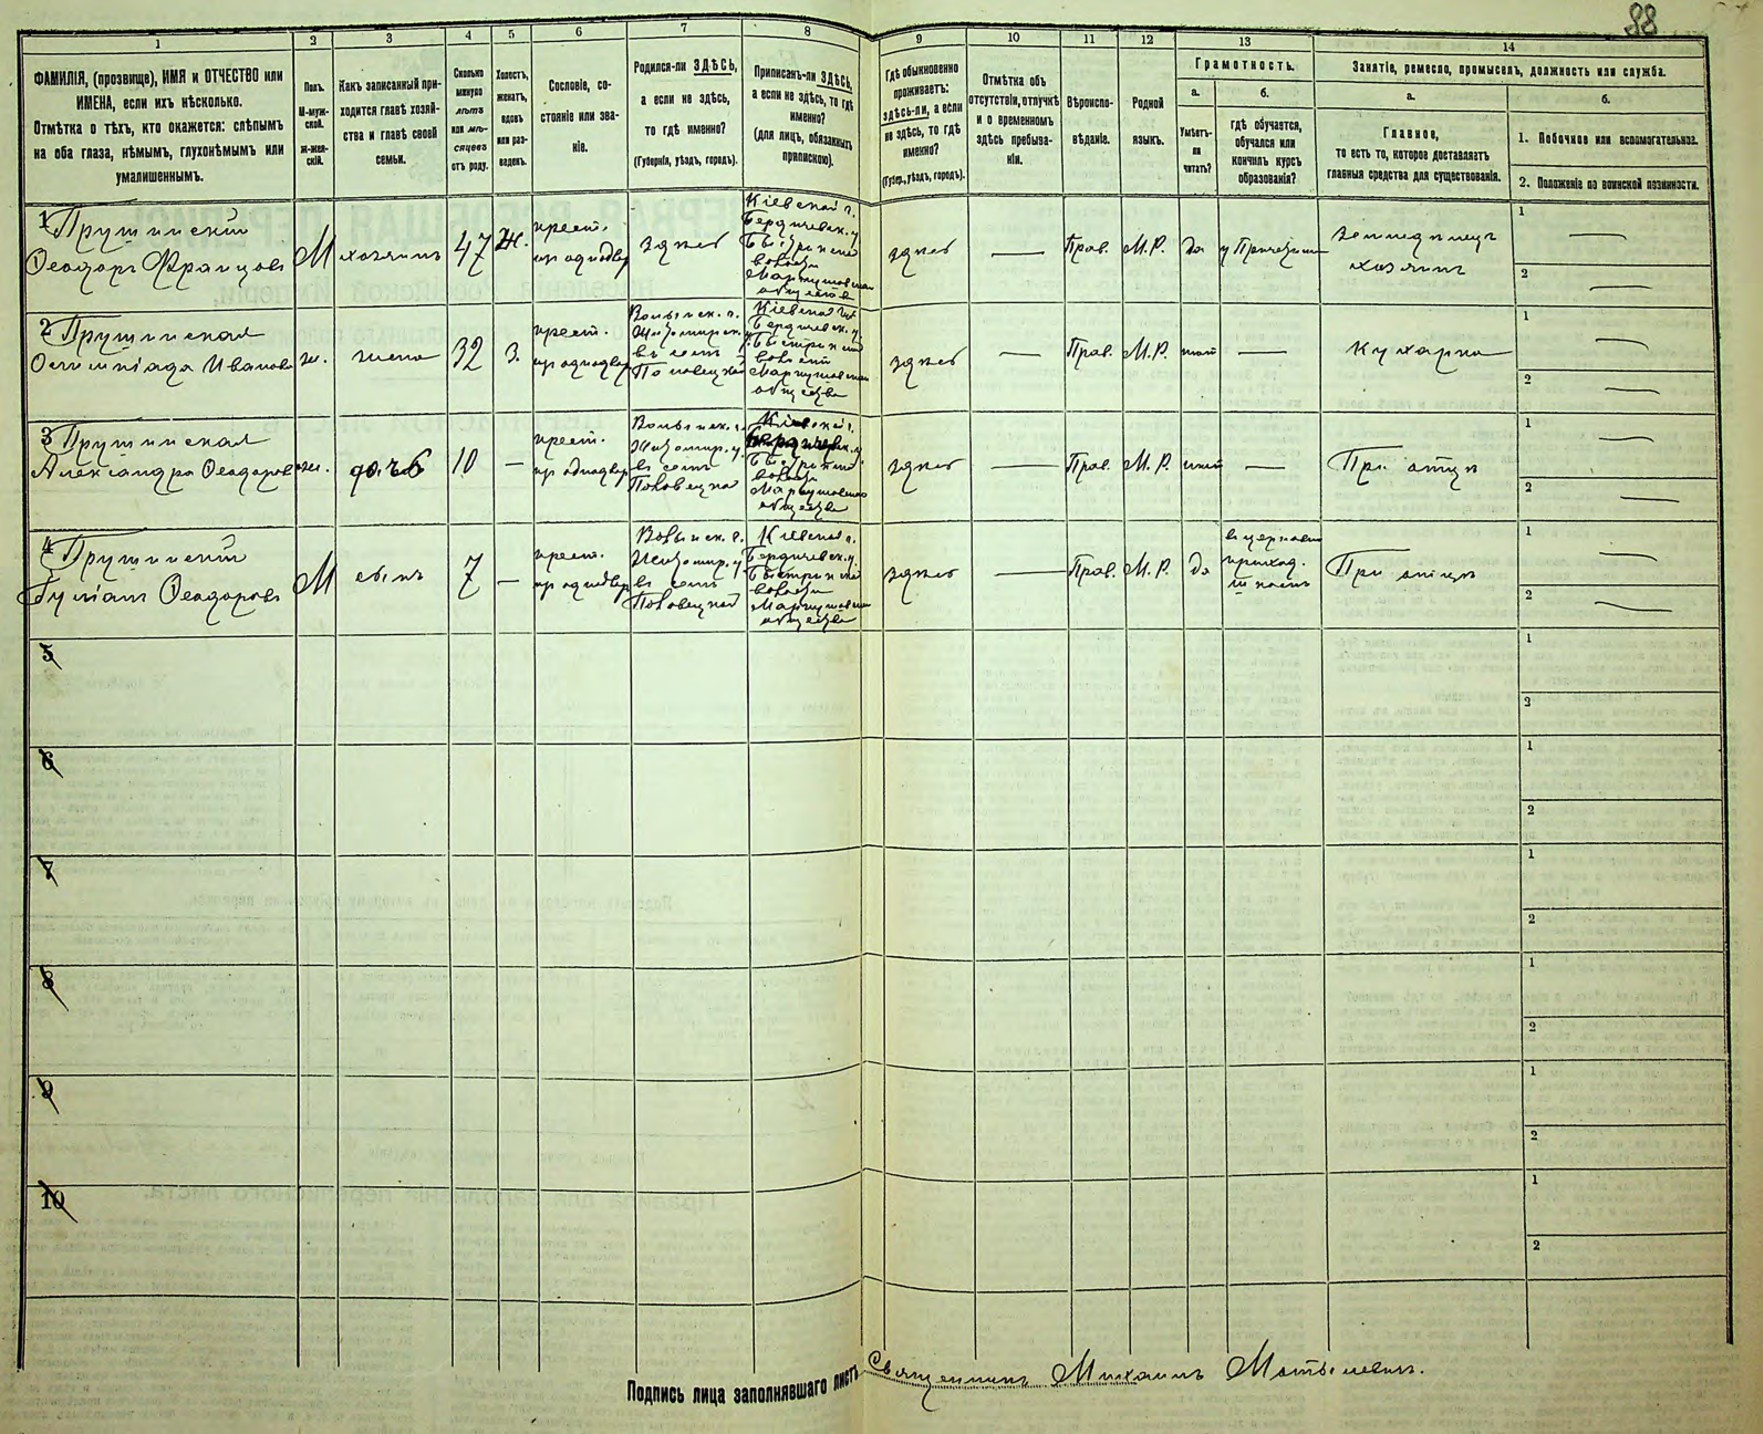 88
1 2 3 4 5 6 7 8 9 10 11 12 13 14
ФАМИЛІЯ, (прозвище), ИМЯ и ОТЧЕСТВО или
ИМЕНА, если ихъ нѣсколько.
Отмѣтка о тѣхъ, кто окажется: слѣпымъ
на оба глаза, нѣмымъ, глухонѣмымъ или
умалишеннымъ.
Полъ.
М-муж-
ской.
Ж-жен-
скій.
Какъ записанный при-
ходится главѣ хозяй-
ства и главѣ своей
семьи.
Сколько
минуло
лѣтъ
или мѣ-
сяцевъ
отъ роду.
Холостъ,
женатъ,
вдовъ
или раз-
веденъ.
Сословіе, со-
стояніе или зва-
ніе.
Родился-ли ЗДѢСЬ,
а если не здѣсь,
то гдѣ именно?
(Губернія, уѣздъ, городъ).
Приписанъ-ли ЗДѢСЬ,
а если не здѣсь, то гдѣ
именно?
(для лицъ, обязанныхъ
припискою).
Гдѣ обыкновенно
проживаетъ:
здѣсь-ли, а если
не здѣсь, то гдѣ
именно?
(Губер., уѣздъ, городъ).
Отмѣтка объ
отсутствіи, отлучкѣ
и о временномъ
здѣсь пребыва-
ніи.
Вѣроиспо-
вѣданіе.
Родной
языкъ.
Грамотность.
а.
Умѣетъ-
ли
читать?
б.
гдѣ обучается,
обучался или
кончилъ курсъ
образованія?
Занятіе, ремесло, промыселъ, должность или служба.
а.
Главное,
то есть то, которое доставляетъ
главныя средства для существованія.
б.
1. Побочное или вспомогательное.
2. Положеніе по воинской повинности.
1 Прушинскій
Ѳеодоръ Францовъ
М
хозяинъ
47
Ж.
крест.
из однодвор
здѣсь
Кіевской г.
Бердичевск. у
Быстрикской
волости
общества
здѣсь
—
Прав.
М.Р.
да
земледѣлецъ
хозяинъ
1 —
2 —
2 Прушинская
Олимпіада Иванова
ж.
жена
32
З.
крест.
из однодвор
Волынск. г.
Житомирск. у.
въ селѣ
Кіевской губ
Бердичевск. у
Быстрикской
волости
общества
здѣсь
—
Прав.
М.Р.
—
Кухарка
1 —
2 —
3 Прушинская
Александра Ѳеодоров
ж.
дочь
10
—
крест.
из однодвор
Волынск. г.
Житомир. у.
въ селѣ
Кіевской г.
Бердичевск. у
Быстрикской
волости
общества
здѣсь
—
Прав.
М.Р.
—
При отцѣ
1 —
2 —
4 Прушинскій
Ѳеодоровъ
М
сынъ
7
—
крест.
из однодвор
Волынск. г.
Житомир. у.
въ селѣ
Кіевской г.
Бердичевск. у
Быстрикской
волости
общества
здѣсь
—
Прав.
М.Р.
да
в церковно
приход.
школѣ
При отцѣ
1 —
2 —
5 1
2
6 1
2
7 1
2
8 1
2
9 1
2
10 1
2
Подпись лица заполнявшаго листъ Священникъ Михаилъ